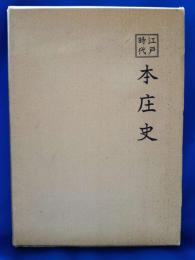 江戸時代
本庄史